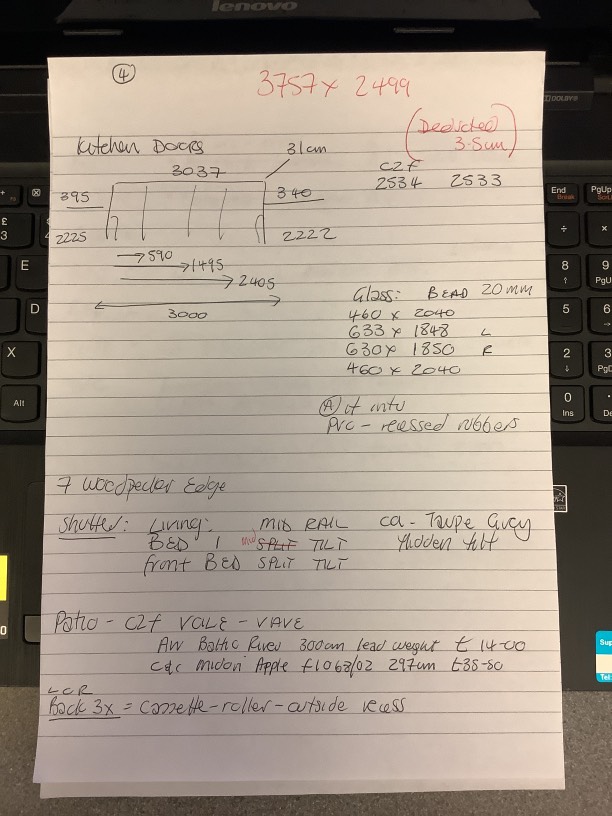 lenovo
DOLBY
④
3757 x 2499
(Deducted
3.5cm)
Kitchen Doors
31cm
3037
C2F
2534 2533
395
340
2225
2222
→590
→1495
→2405
3000
Glass: BEAD 20mm
460 x 2040
633 x 1848 L
630 x 1850 R
460 x 2040
Ⓐ it into
PVC - recessed rubbers
7 Woodpecker Edge
Shutter: Living: MID RAIL ca - Taupe Grey
BED 1 mid SPLIT TILT Hidden tilt
front BED SPLIT TILT
Patio - C2F VALE - VAVE
AW Baltic River 300cm lead weight £ 14-00
cdc midori Apple f1063/02 297cm £35-50
LCR
Back 3x = Cassette-roller-outside recess
End
Break
PgUp
£
3
E
D
X
Alt
÷
x
8
9
PgU
5
6
2
3
PgD
0
Ins
De
Sup
Tel